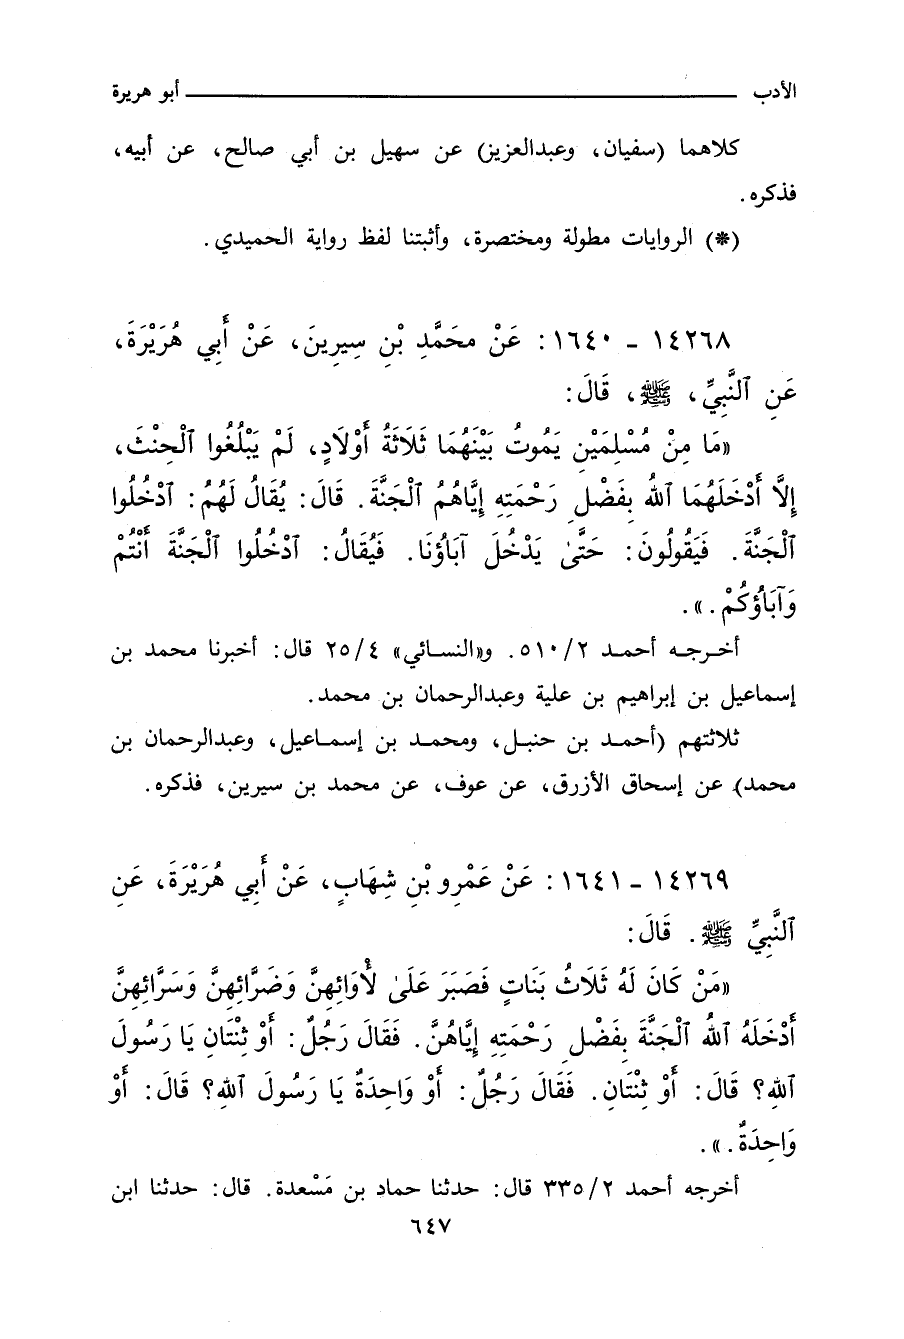 الأدب ــــــــــ أبو هريرة
كلاهما (سفيان، وعبدالعزيز) عن سهيل بن أبي صالح، عن أبيه،
فذكره.
(*) الروايات مطولة ومختصرة، وأثبتنا لفظ رواية الحميدي.
١٤٢٦٨ - ١٦٤٠: عَنْ محَمَّدِ بْنِ سِيرِينَ، عَنْ أَبِي هُرَيْرَةَ،
عَنِ ٱلنَّبِيِّ، ﷺ، قَالَ:
«مَا مِنْ مُسْلِمَيْنِ يَمُوتُ بَيْنَهُمَا ثَلَاثَةُ أَوْلَادٍ، لَمْ يَبْلُغُوا ٱلْحِنْثَ،
إِلَّا أَدْخَلَهُمَا ٱللهُ بِفَضْلِ رَحْمَتِهِ إِيَّاهُمُ ٱلْجَنَّةَ. قَالَ: يُقَالُ لَهُمُ: ٱدْخُلُوا
ٱلْجَنَّةَ. فَيَقُولُونَ: حَتَّىٰ يَدْخُلَ آبَاؤُنَا. فَيُقَالُ: ٱدْخُلُوا ٱلْجَنَّةَ أَنْتُمْ
وَآبَاؤُكُمْ.».
أخرجه أحمد ٥١٠/٢. و«النسائي» ٢٥/٤ قال: أخبرنا محمد بن
إسماعيل بن إبراهيم بن علية وعبدالرحمان بن محمد.
ثلاثتهم (أحمد بن حنبل، ومحمد بن إسماعيل، وعبدالرحمان بن
محمد) عن إسحاق الأزرق، عن عوف، عن محمد بن سيرين، فذكره.
١٤٢٦٩ - ١٦٤١: عَنْ عَمْرِو بْنِ شِهَابٍ، عَنْ أَبِي هُرَيْرَةَ، عَنِ
ٱلنَّبِيِّ ﷺ. قَالَ:
«مَنْ كَانَ لَهُ ثَلَاثُ بَنَاتٍ فَصَبَرَ عَلَىٰ لأْوَائِهِنَّ وَضَرَّائِهِنَّ وَسَرَّائِهِنَّ
أَدْخَلَهُ ٱللهُ ٱلْجَنَّةَ بِفَضْلِ رَحْمَتِهِ إِيَّاهُنَّ. فَقَالَ رَجُلٌ: أَوْ ثِنْتَانِ يَا رَسُولَ
ٱللهِ؟ قَالَ: أَوْ ثِنْتَانِ. فَقَالَ رَجُلٌ: أَوْ وَاحِدَةٌ يَا رَسُولَ ٱللهِ؟ قَالَ: أَوْ
وَاحِدَةٌ.».
أخرجه أحمد ٣٣٥/٢ قال: حدثنا حماد بن مَسْعدة. قال: حدثنا ابن
٦٤٧